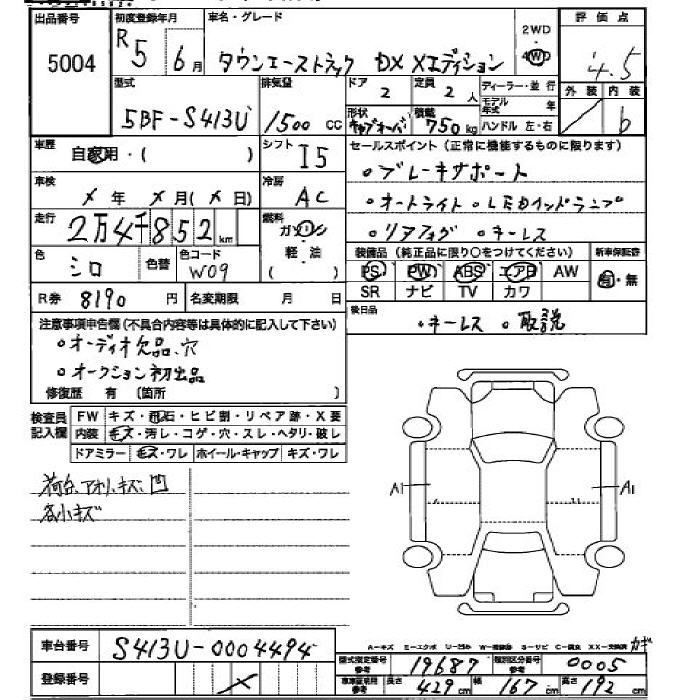 出品番号
5004
初度登録年月
R5 6月
車名・グレード
タウンエーストラック DX Xエディション
2WD
4WD
評価点
4.5
外装 内装
b
型式
5BF-S413U
排気量
1500 cc
ドア
2
定員
2 人
ディーラー・並行
モデル年式 年
ハンドル 左・右
形状
キャブオーバ
積載
750 kg
車歴
自家用・( )
シフト
I5
車検
× 年 × 月(× 日)
冷房
AC
走行
2万4千852 km
燃料
ガソリン
軽油
( )
色
シロ
色替
色コード
W09
R券 8190 円
名変期限 月 日
セールスポイント(正常に機能するものに限ります)
・ブレーキサポート
・オートライト ・LEDヘッドランプ
・リアフォグ ・キーレス
装備品(純正品に限り○をつけてください)
PS PW ABS エアB AW
SR ナビ TV カワ
新車保証書
有・無
後日品
・キーレス ・取説
注意事項申告欄(不具合内容等は具体的に記入して下さい)
・オーディオ欠品、穴
・オークション初出品
修復歴 有 〔箇所 〕
検査員記入欄
FW キズ・飛石・ヒビ割・リペア跡・X要
内装 キズ・汚レ・コゲ・穴・スレ・ヘタリ・破レ
ドアミラー キズ・ワレ ホイール・キャップ キズ・ワレ
荷台、アオリ、キズ、凹
各小キズ
A1
A1
車台番号
S413U-0004494
登録番号
×
A-キズ E-エクボ U-凹み W-補修跡 S-サビ C-腐食 XX-交換済
型式指定番号 参考
19687
類別区分番号 参考
0005
車検証使用 参考
長さ 429 cm 幅 167 cm 高さ 192 cm